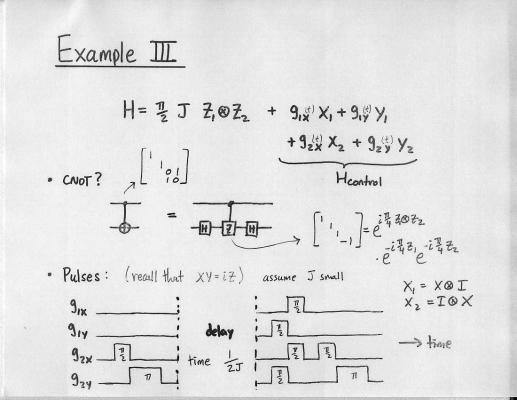 Example III
H = π/2 J Z₁⊗Z₂ + g₁ₓ(t) X₁ + g₁y(t) Y₁
+ g₂ₓ(t) X₂ + g₂y(t) Y₂
Hcontrol
• CNOT? [1 1 01 10]
= H Z H [1 1 1 -1] = e^{iπ/4 Z₁⊗Z₂}
· e^{-iπ/4 Z₁} e^{-iπ/4 Z₂}
• Pulses: (recall that XY=iZ) assume J small
X₁ = X⊗I
X₂ = I⊗X
g₁ₓ π/2
g₁y delay π/2 → time
g₂ₓ π/2 time 1/2J π/2 π/2
g₂y π π/2 π